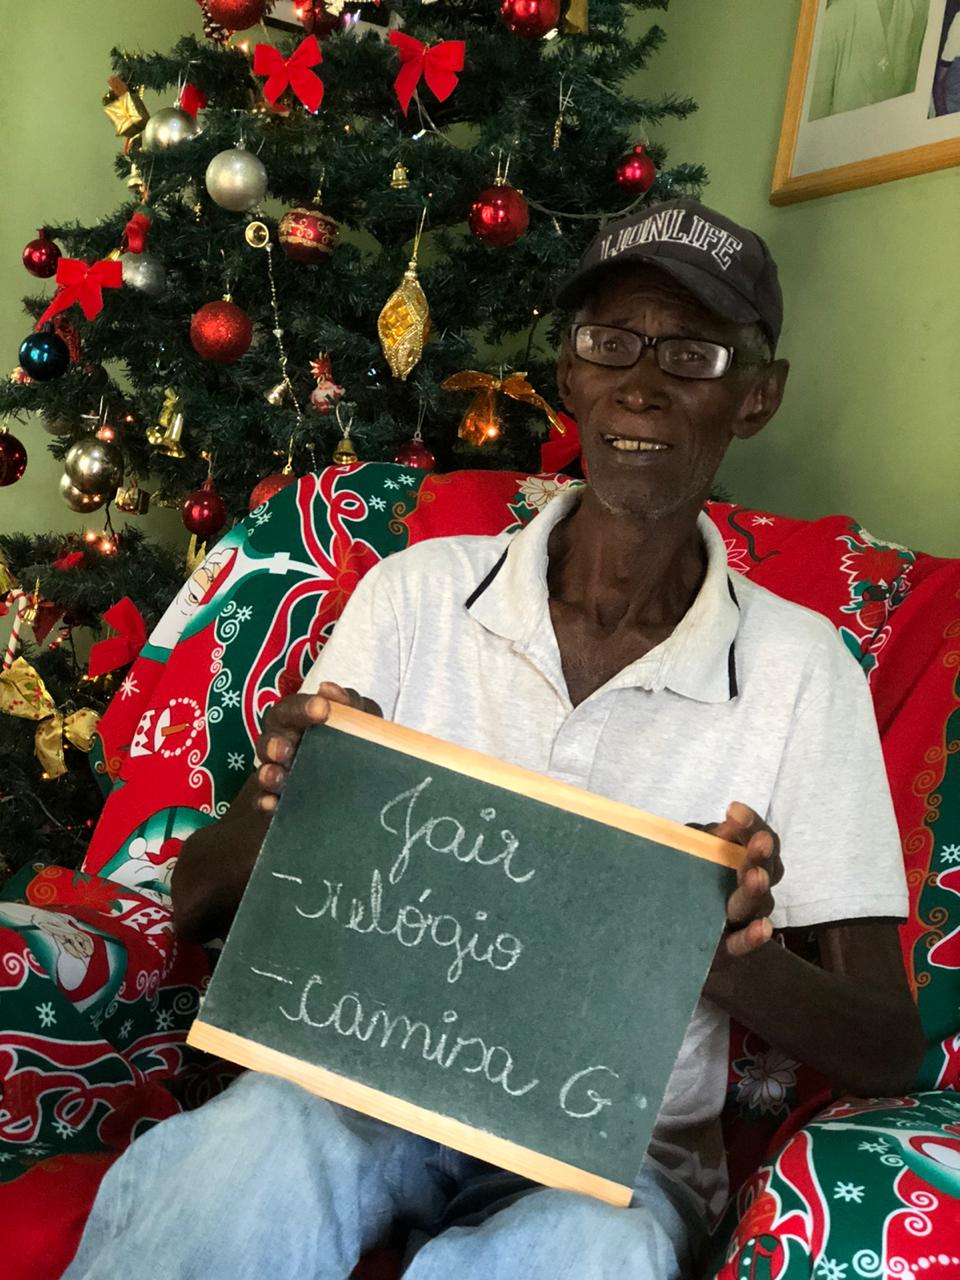 LIONLIFE
Jair
- relógio
- camisa G.